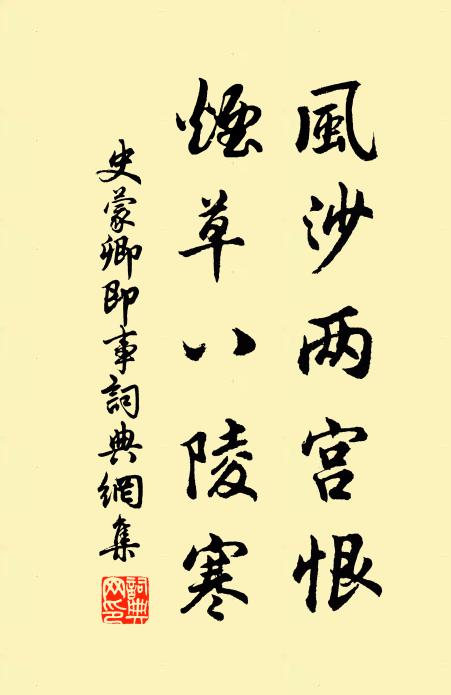 風沙两宫恨
煙草八陵寒
史蒙卿即事詞典網集
詞典網印